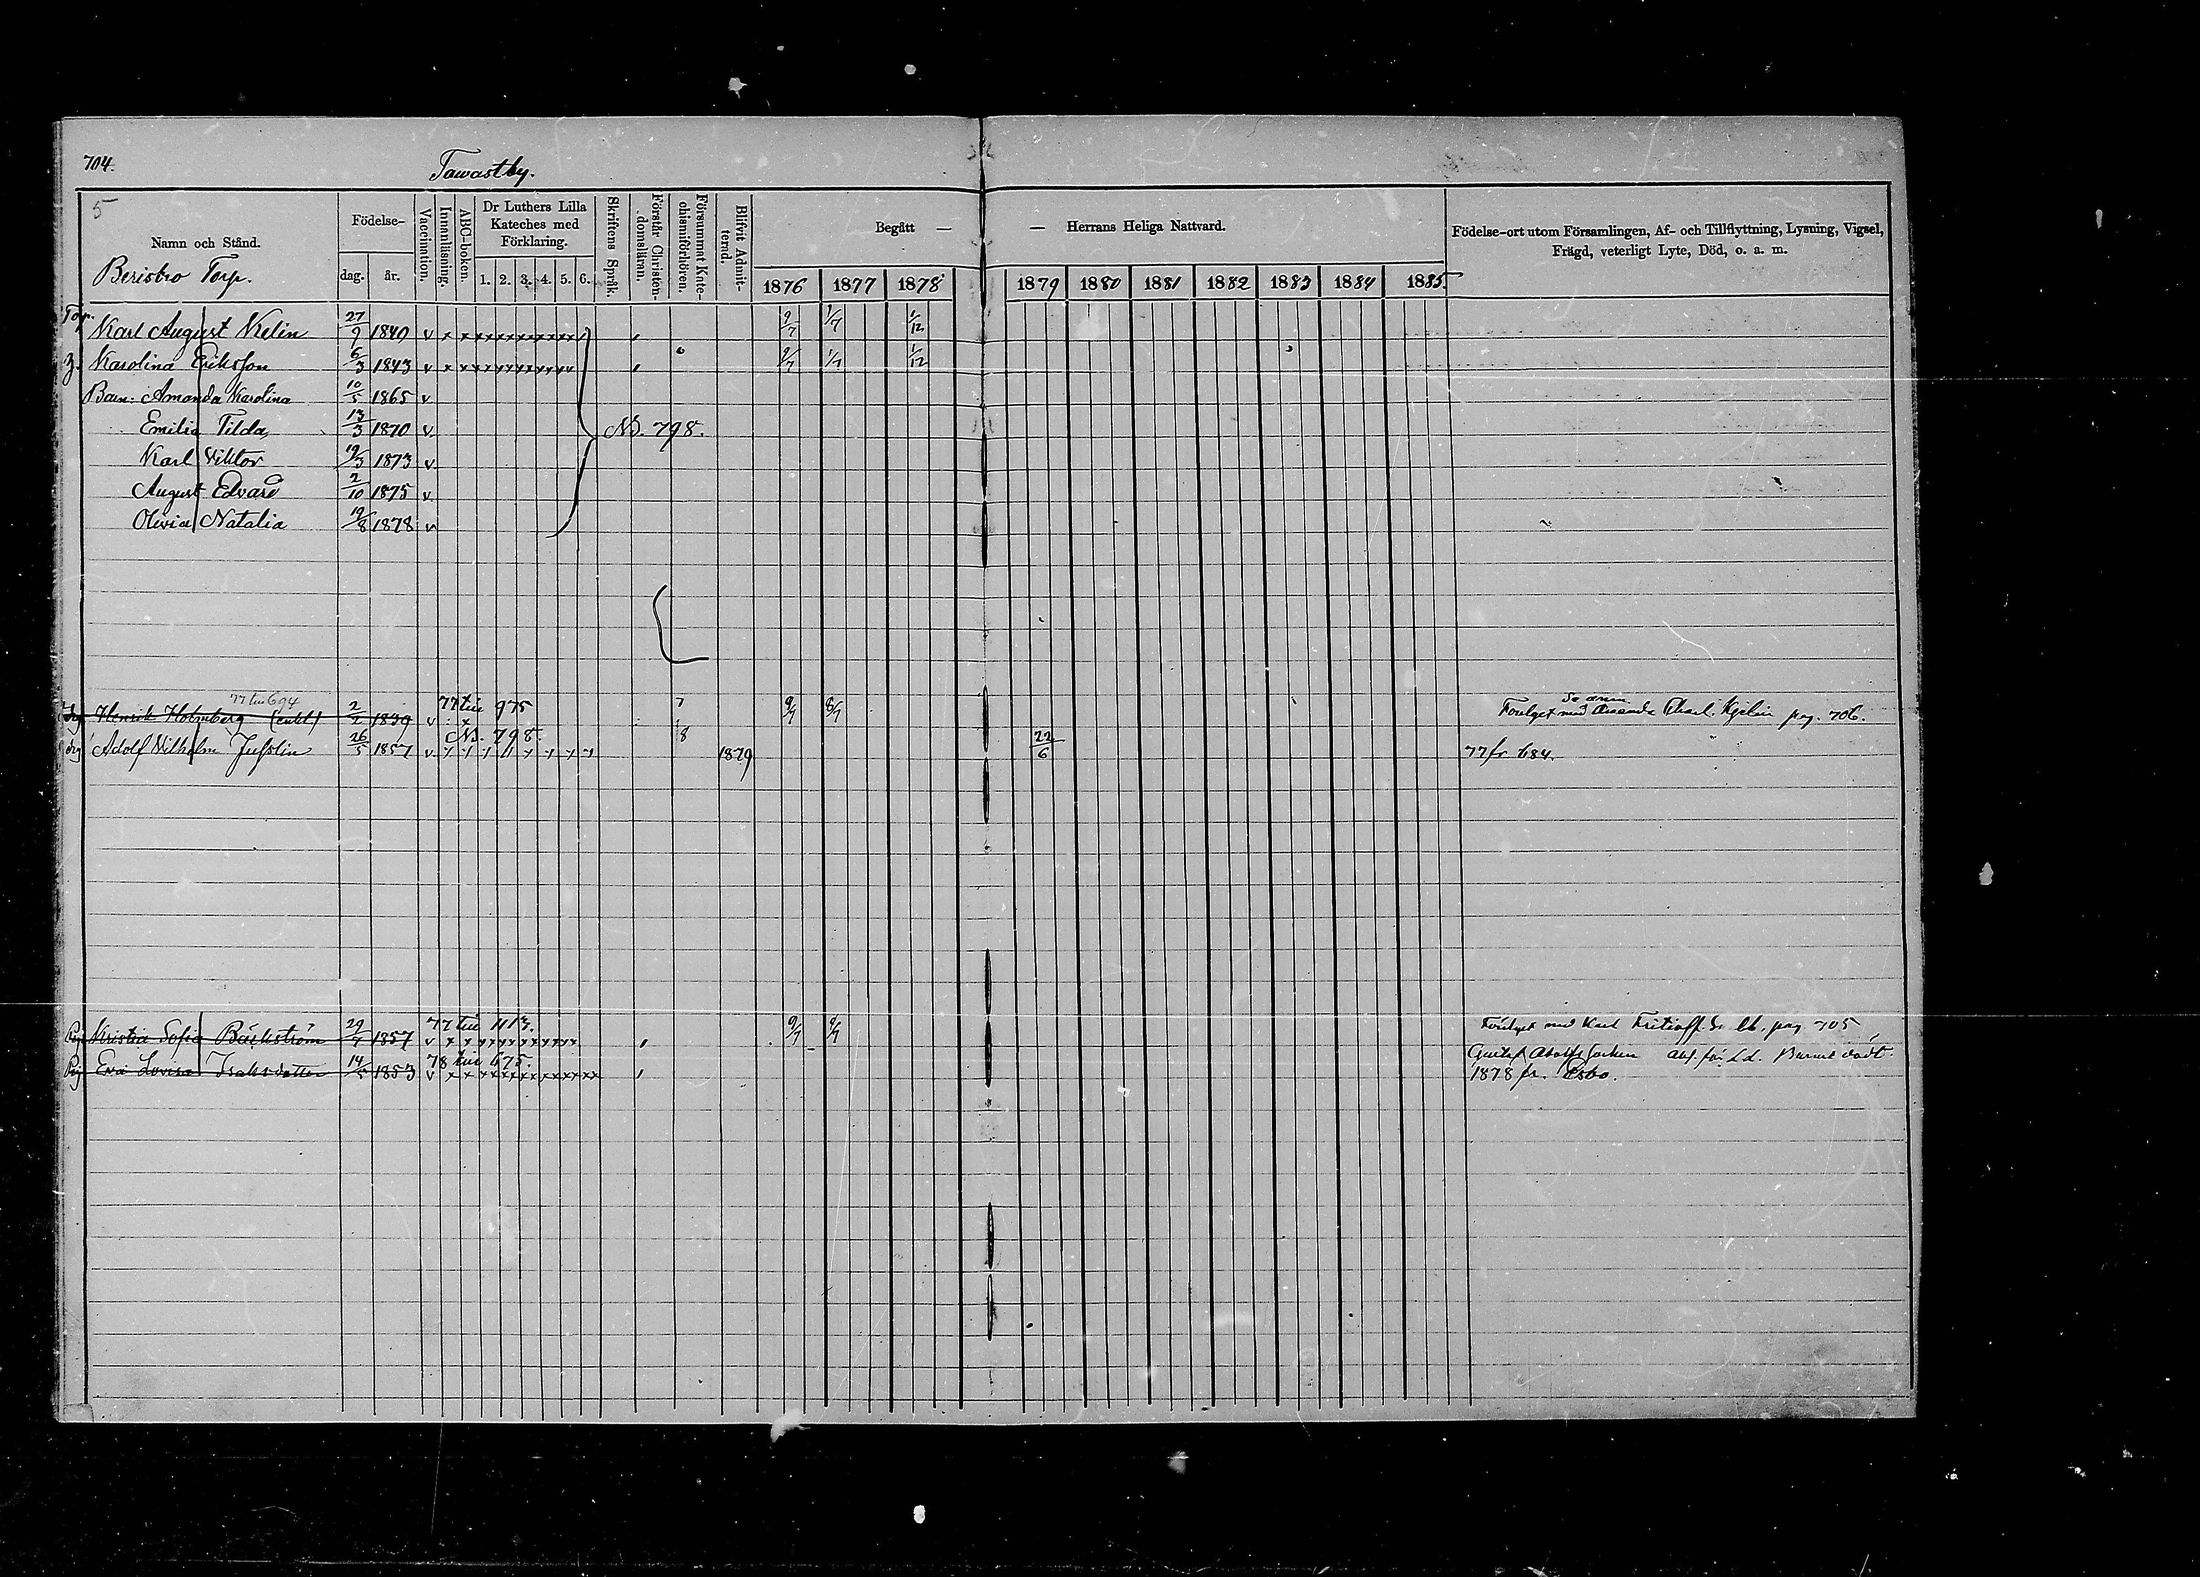 704.
Tawastby.
5
Namn och Stånd.
Födelse-
dag.
år.
Vaccination.
Innanläsning.
ABC-boken.
Dr Luthers Lilla
Kateches med
Förklaring.
1. 2. 3. 4. 5. 6.
Skriftens Språk.
Förstår Christen-
domsläran.
Försummat Kate-
chismiförhören.
Blifvit Admit-
terad.
Begått —
— Herrans Heliga Nattvard.
1876 1877 1878 1879 1880 1881 1882 1883 1884 1885.
Födelse-ort utom Församlingen, Af- och Tillflyttning, Lysning, Vigsel,
Frägd, veterligt Lyte, Död, o. a. m.
Torp.
Karl August 27/9 1840 v 9/7 1/7 1/12
Karolina Eriksson 6/3 1843 v 9/7 1/7 1/12
Barn: Amanda Karolina 10/5 1865 v
Emilia Tilda 13/3 1870 v No. 798.
Karl Viktor 19/3 1873 v
August Edvard 2/10 1875 v
Olivia Natalia 19/8 1878 v
77 till 694
77 till 975
Henrik Holmberg (enkl.) 2/2 1839 v 7 9/7 8/7 pag. 706.
No. 798.
Adolf Vilhelm Jusslin 26/5 1857 v 8 1879 22/6 77 fr 684.
77 till 1113.
Sofia Bäckström 29/7 1857 v 9/7 Karl Fritioff pag 705
78 till 675.
Eva Lovisa Isaksdotter 14/5 1853 v Gustaf
1878 fr. Esbo.